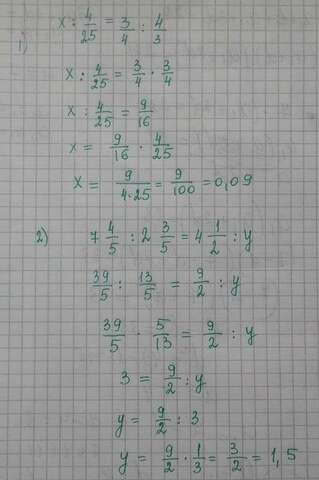 1) x : 4/25 = 3/4 : 4/3
x : 4/25 = 3/4 · 3/4
x : 4/25 = 9/16
x = 9/16 · 4/25
x = 9/4·25 = 9/100 = 0,09
2) 7 4/5 : 2 3/5 = 4 1/2 : y
39/5 : 13/5 = 9/2 : y
39/5 · 5/13 = 9/2 : y
3 = 9/2 : y
y = 9/2 : 3
y = 9/2 · 1/3 = 3/2 = 1,5